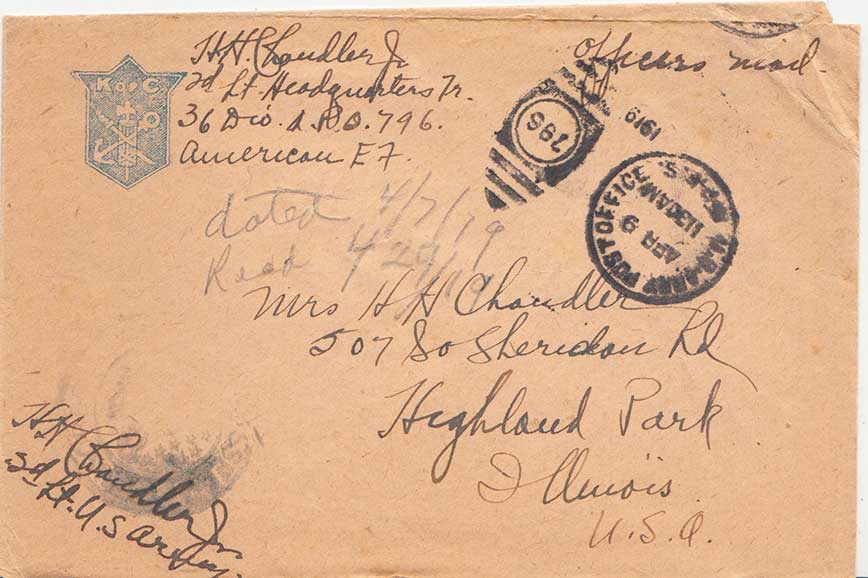 K of C
H.H. Chandler Jr
2d Lt. Headquarters Tr.
36 Div. A.P.O. 796.
American E.F.
Officers mail.
796
1919
POST OFFICE
APR 9
1130AM
dated 4/7/19
Recd 4/29/19
Mrs H H Chandler
507 So Sheridan Rd
Highland Park
Illinois
U.S.A.
HH Chandler Jr.
2d Lt. U.S. Army.